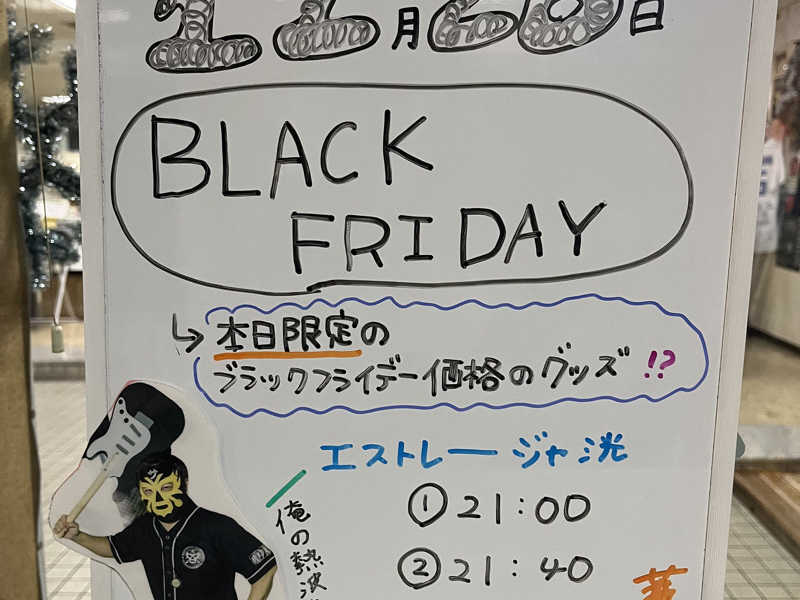 11月28日
BLACK
FRIDAY
↳本日限定の
ブラックフライデー価格のグッズ!?
エストレージャ洸
①21:00
②21:40
俺の熱波